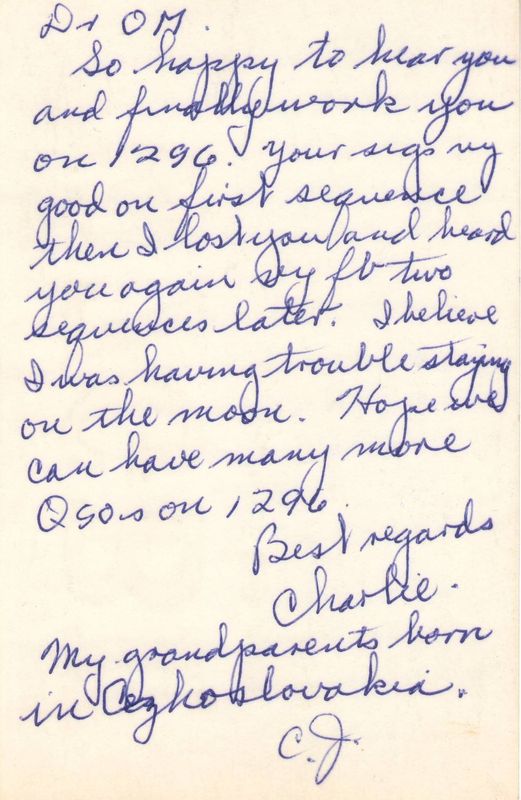 Dr OM.
So happy to hear you
and finally work you
on 1296. Your sigs vy
good on first sequence
then I lost you and heard
you again vy fb two
sequences later. I believe
I was having trouble staying
on the moon. Hope we
can have many more
QSOs on 1296.
Best regards
Charlie.
My grandparents born
in Czhoslovakia.
C.J.